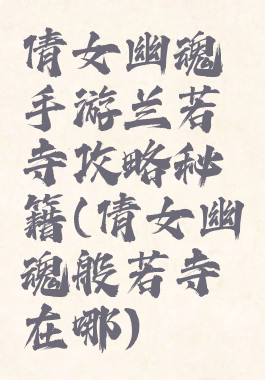 倩女幽魂
手游兰若
寺攻略秘
籍(倩女幽
魂般若寺
在哪)